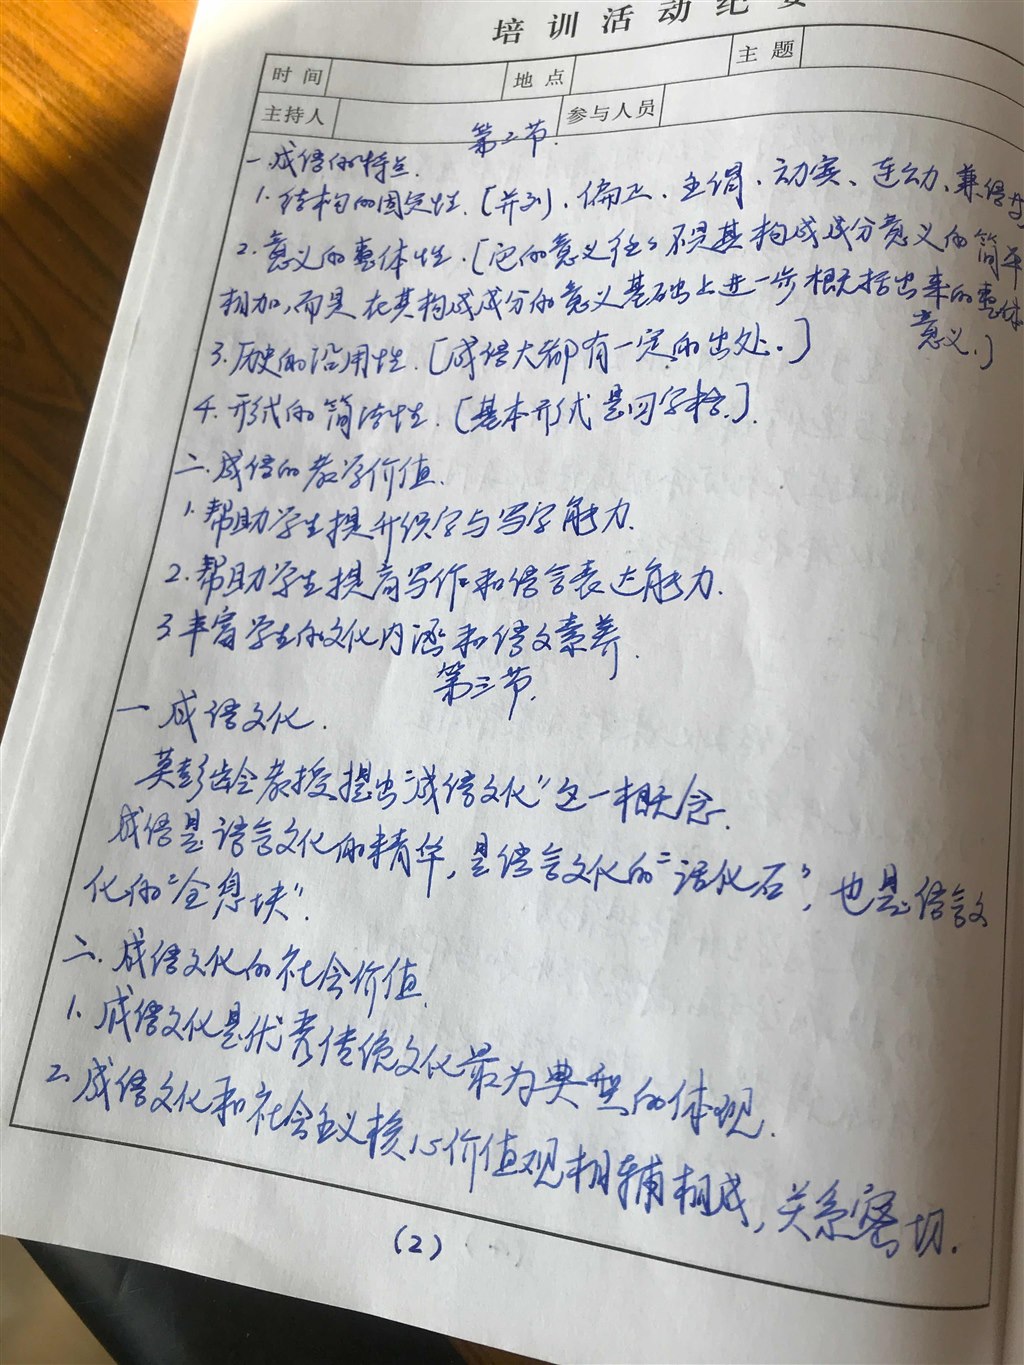 培训活动纪要
时间 地点 主题
主持人 参与人员
第二节.
一.成语的特点.
1.结构的固定性.[并列、偏正、主谓、动宾、连动、兼语等
2.意义的整体性.[它的意义往々不是其构成成分意义的简单
相加,而是在其构成成分的意义基础上进一步概括出来的整体
意义.]
3.历史的沿用性.[成语大都有一定的出处.]
4.形式的简洁性.[基本形式是四字格.]
二.成语的教学价值.
1.帮助学生提升识字与写字能力.
2.帮助学生提高写作和语言表达能力.
3丰富学生的文化内涵和语文素养.
第三节.
一 成语文化.
莫彭龄教授提出“成语文化”这一概念.
成语是语言文化的精华,是语言文化的“活化石”,也是语言文
化的“全息块”.
二.成语文化的社会价值.
1.成语文化是优秀传统文化最为典型的体现.
2.成语文化和社会主义核心价值观相辅相成,关系密切.
(2)